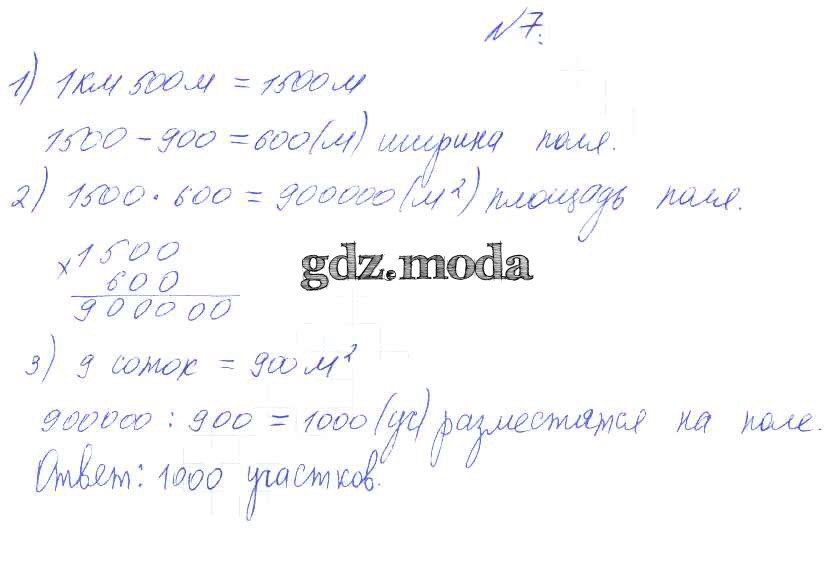 №7.
1) 1км 500м = 1500м
1500 - 900 = 600(м) ширина поля.
2) 1500 · 600 = 900000(м²) площадь поля.
× 1500
600
900000
gdz.moda
3) 9 соток = 900м²
900000 : 900 = 1000 (уч) разместятся на поле.
Ответ: 1000 участков.